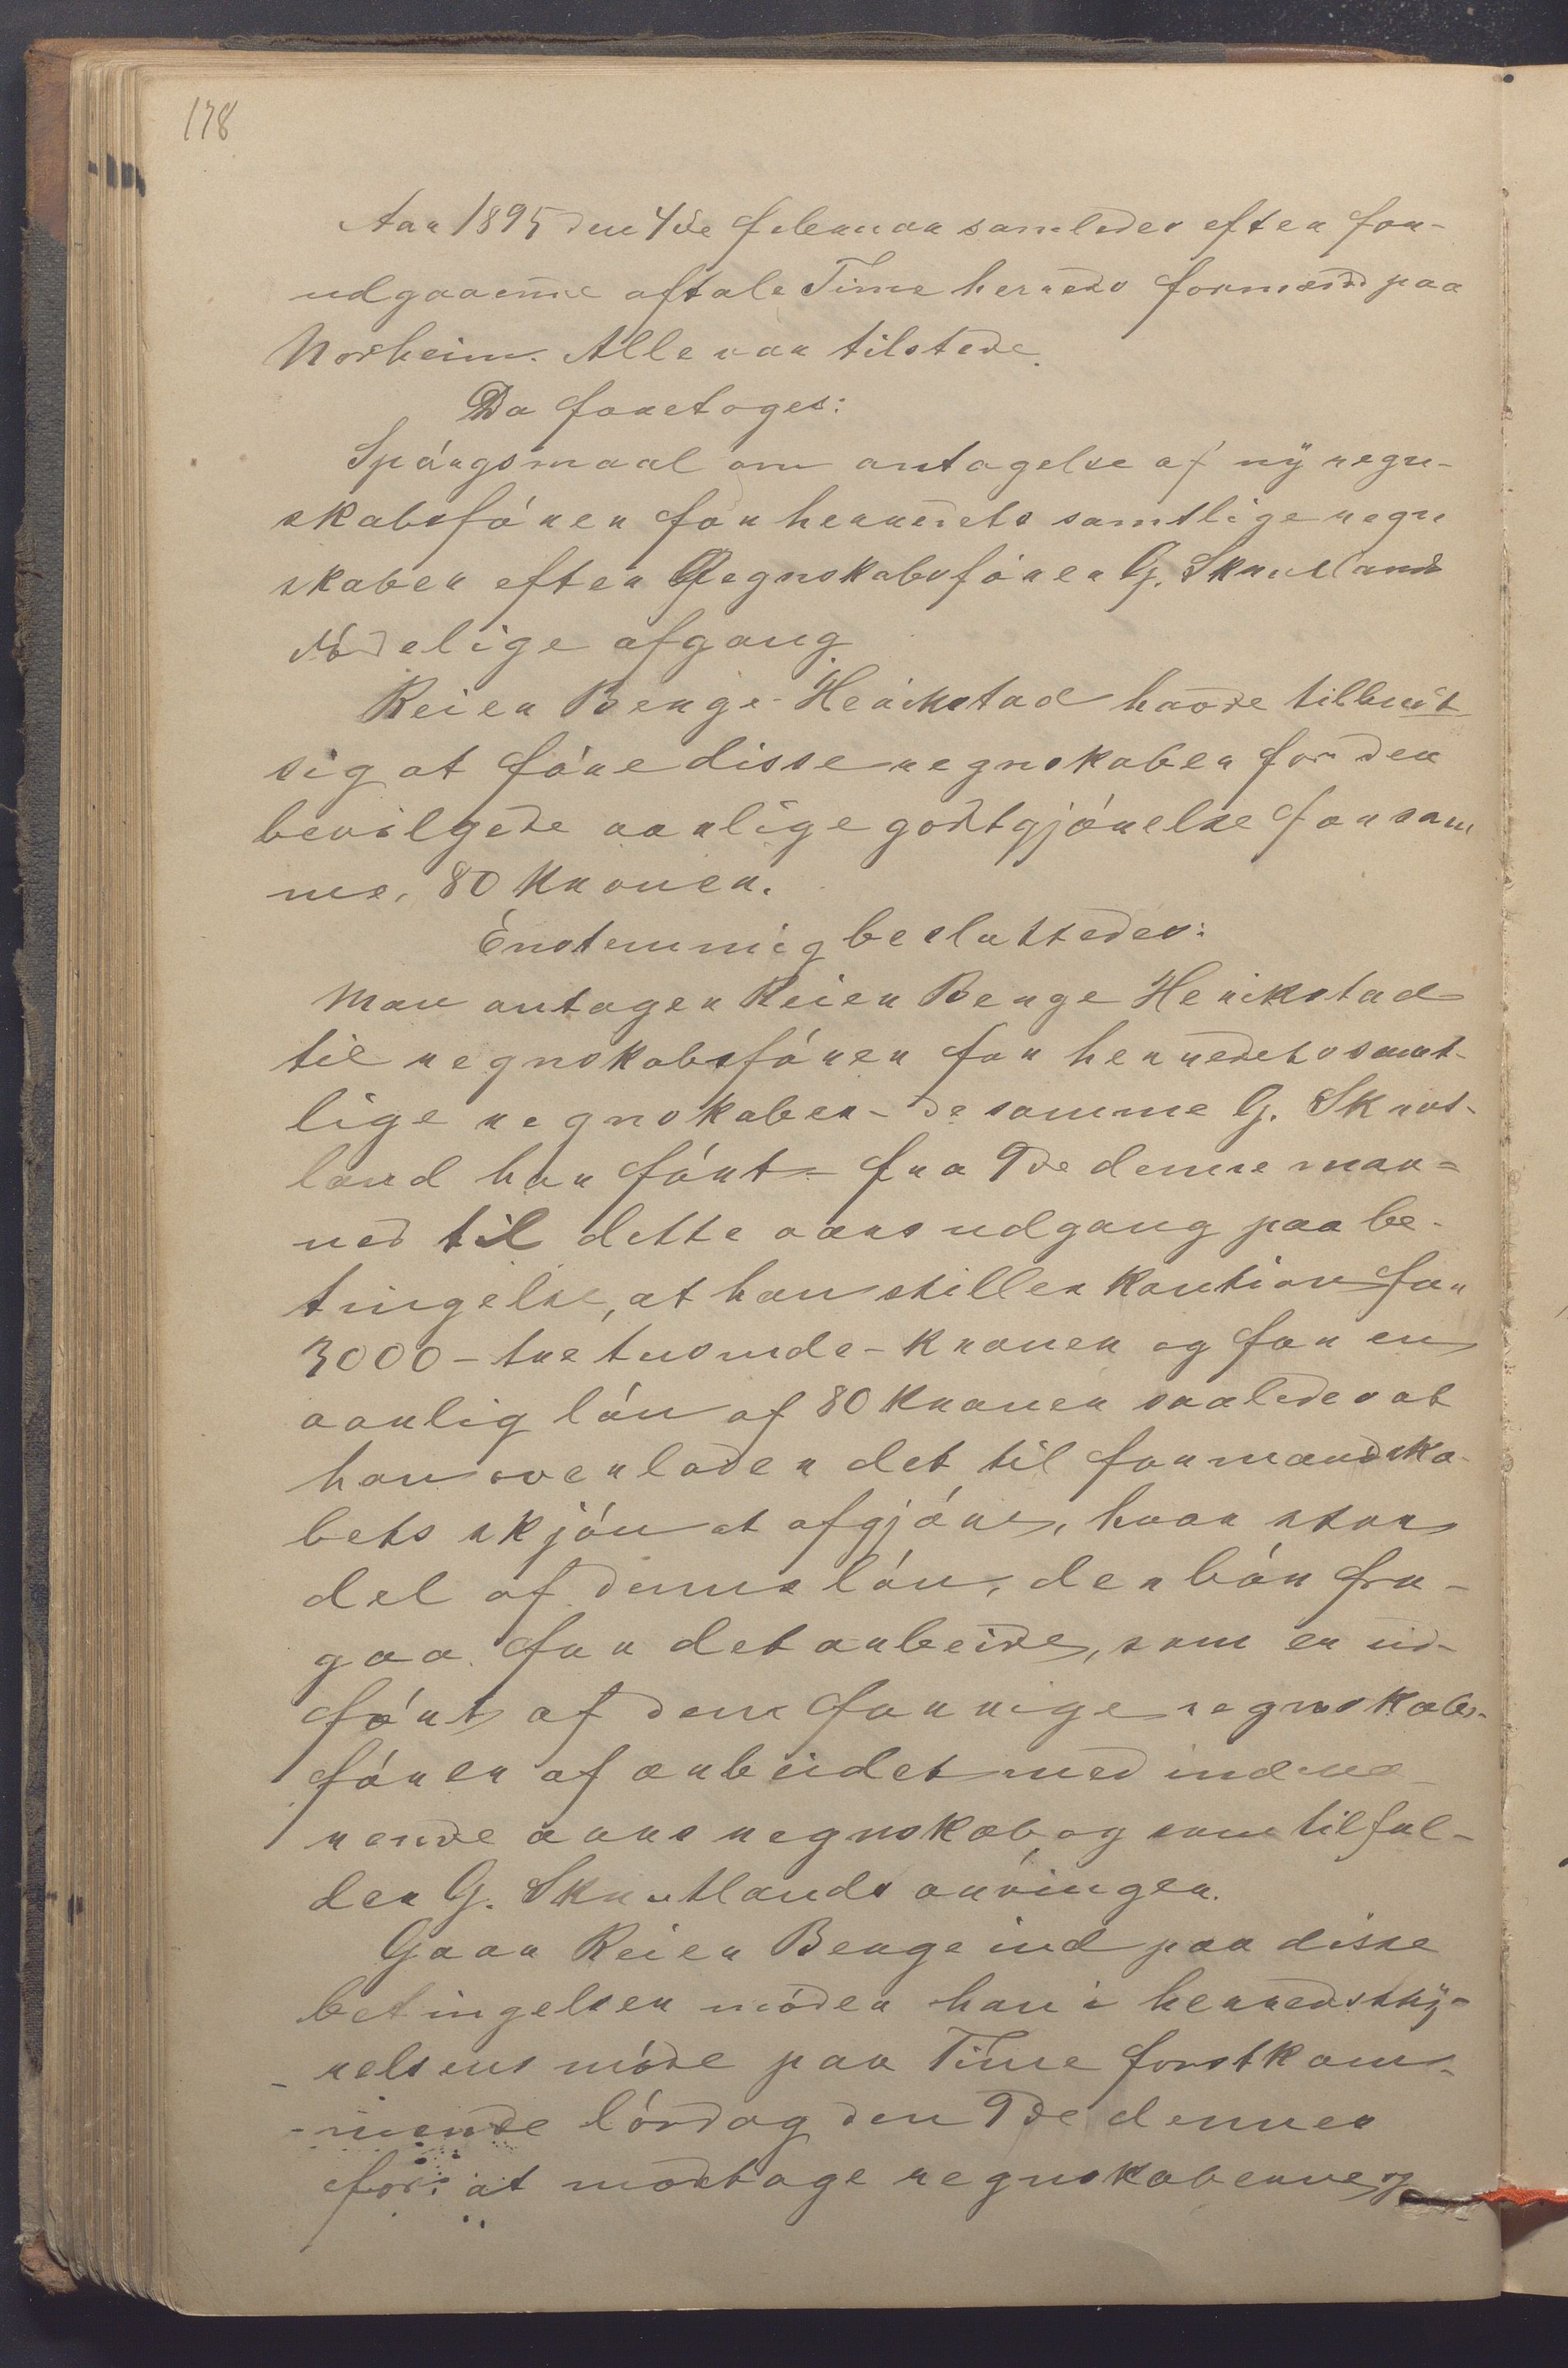 178
Aar 1895 den 4de februar samledes efter for-
udgaaende aftale Time herreds formænd paa
Norheim. Alle var tilstede.
Da foretoges:
Spórgsmaal om antagelse af ny regn-
skabsfórer for herredets samtlige regn
skaber efter Regnskabsfórer G. Skrudlands
dódelige afgang.
Reier Berge-Herikstad havde tilbudt
sig at fóre disse regnskaber for den
bevilgede aarlige godtgjórelse for sam
me, 80 kroner.
Énstemmig besluttedes:
Man antager Reier Berge Herikstad
til regnskabsfórer for herredets samt-
lige regnskaber - de samme G. Skrut-
land har fórt - fra 9de denne maa-
ned til dette aars udgang paa be-
tingelse, at han stiller kaution for
3000 - tre tusinde - kroner og for en
aarlig lón af 80 kroner saaledes at
han overlader det til formandska-
bets skjón at afgjóre, hvor stor
del af denne lón, der bór fra-
gaa for det arbeide, som er ud-
fórt af den forrige regnskabs-
fórer af arbeidet med indevæ-
rende aars regnskab, og som tilfal-
der G. Skrutlands arvinger.
Gaar Reier Berge ind paa disse
betingelser móder han i herredssty-
relsens móde paa Time forstkom-
mende lórdag den 9de dennes
for at modtage regnskaberne og